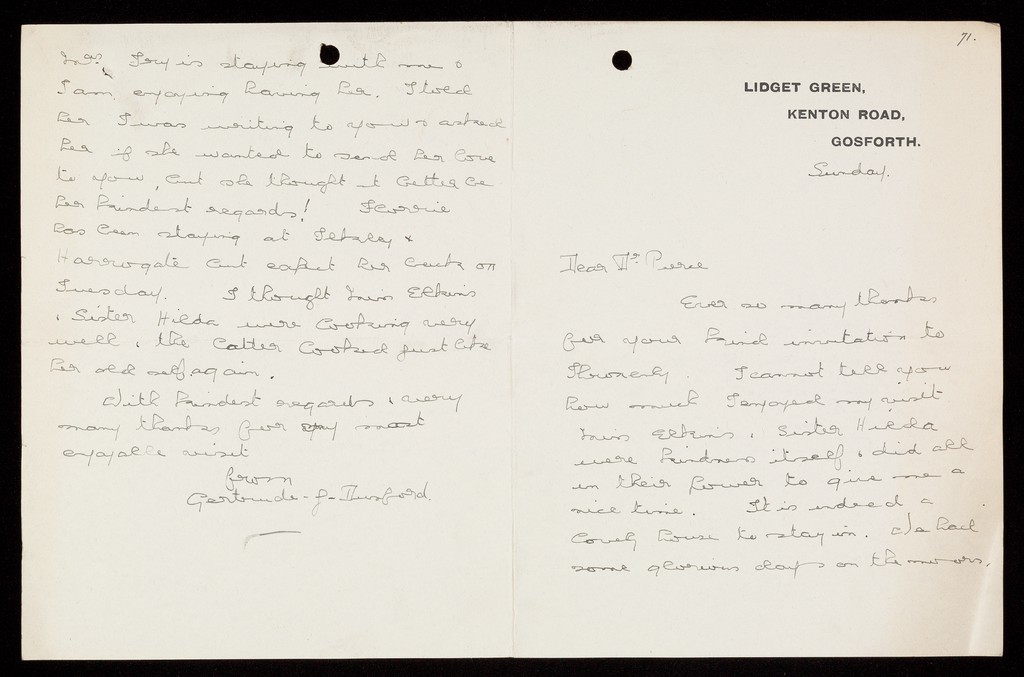 71.
LIDGET GREEN,
KENTON ROAD,
GOSFORTH.
Sunday.
Dear Dr
Ever so many thanks
for your kind invitation to
I cannot tell you
how much I enjoyed my visit
Miss Elkins & Sister Hilda
were kindness itself & did all
in their power to give me a
nice time. It is indeed a
lovely house to stay in. We had
some glorious days on the moors.
Mrs. Fry is staying with me &
I am enjoying having her. I told
her I was writing to you & asked
her if she wanted to send her love
to you, but she thought it better be
her kindest regards! Florrie
has been staying at Ilkley &
Harrogate but expect her back on
Tuesday. I thought Miss Elkins
& Sister Hilda were looking very
well, & the latter looked just like
her old self again.
With kindest regards & very
many thanks for my most
enjoyable visit
from
Gertrude